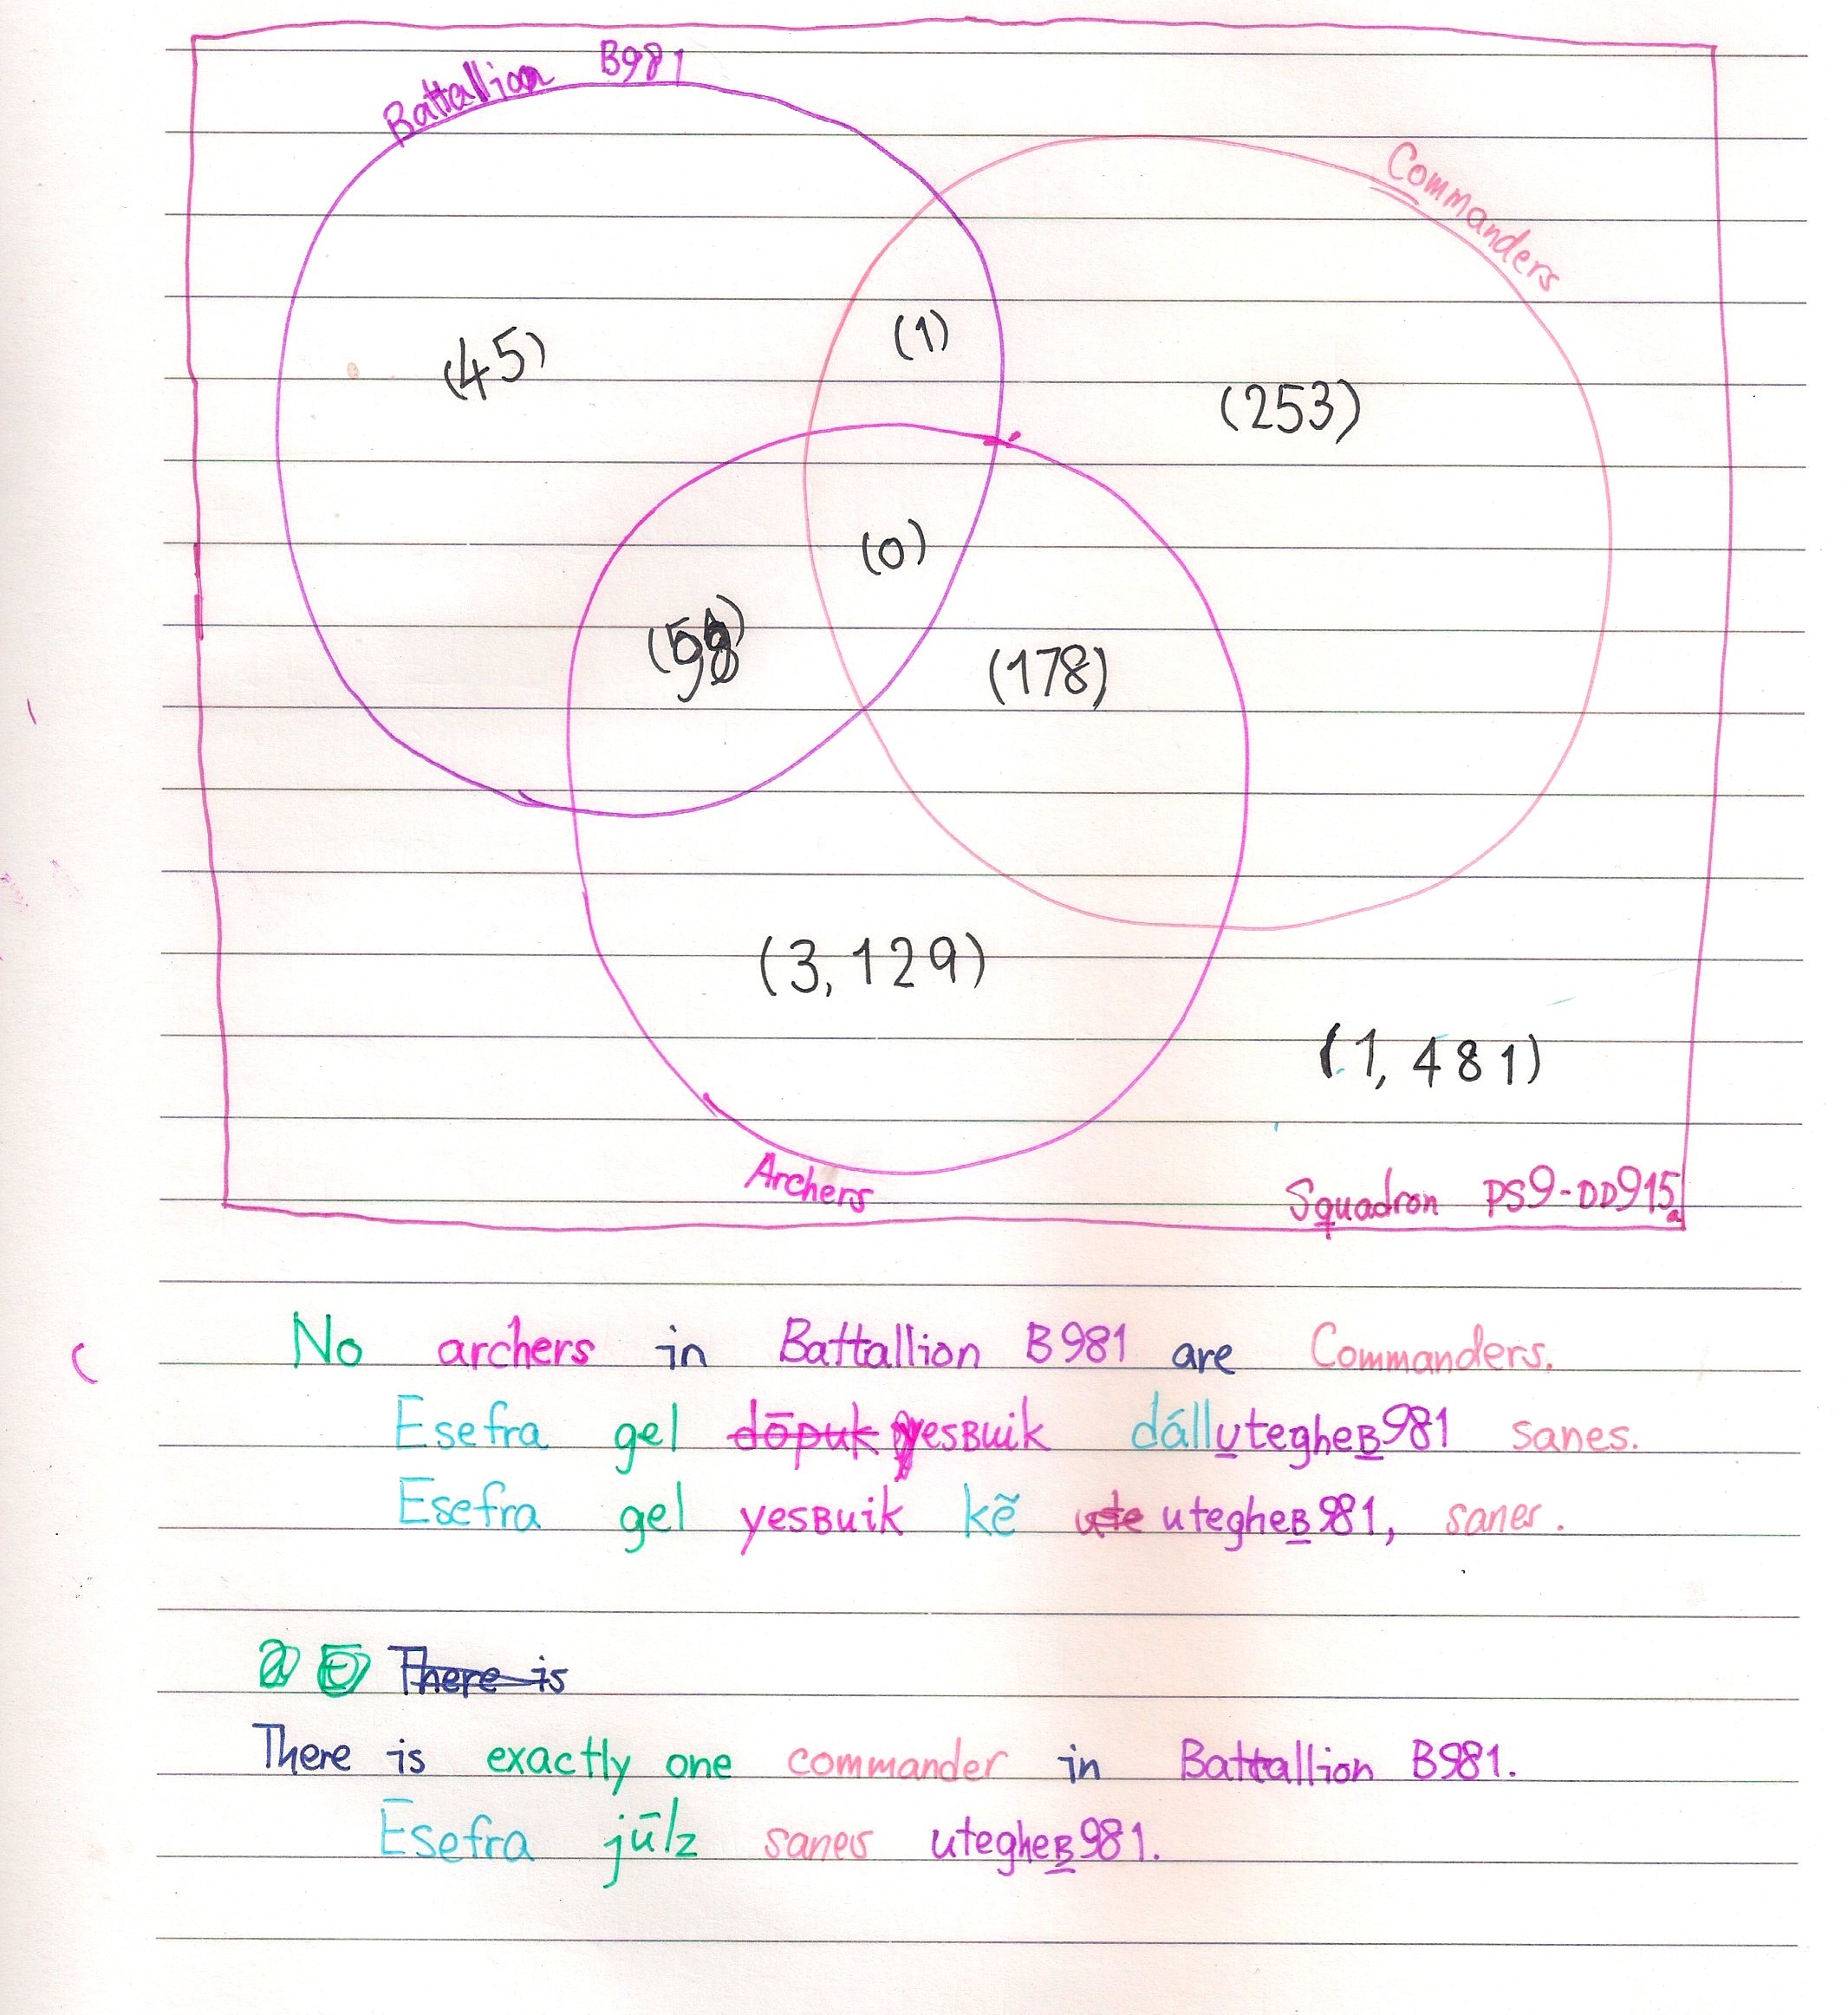 Battallion B981
Commanders
(45)
(1)
(253)
(0)
(178)
(3,129)
(1,481)
Archers
Squadron PS9-DD915
No archers in Battallion B981 are Commanders.
Esefra gel dōpuk yesBuik dállutegheB981 sanes.
Esefra gel yesBuik kẽ ute utegheB981, sanes.
There is
There is exactly one commander in Battallion B981.
Esefra jūlz sanes utegheB981.